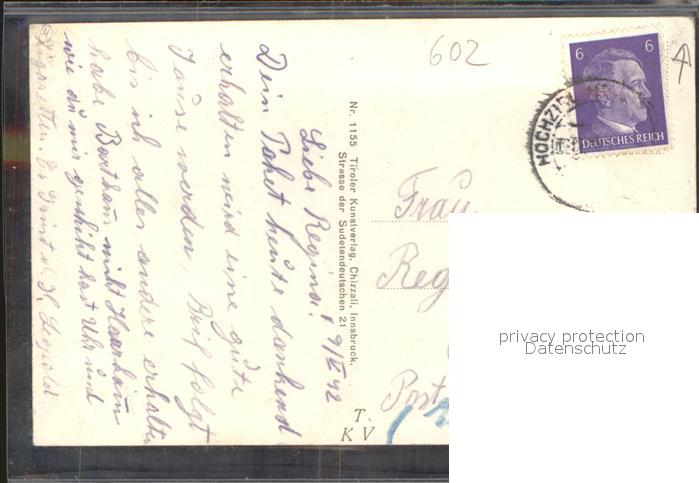 602
6 6
DEUTSCHES REICH
HOCHZIRL
Liebe Regina! 9/II 42
Dein Paket heute dankend
erhalten wird eine gute
Jause werden, Brief folgt
bis ich alles andere erhalten
habe
wie du mir geschickt hast Uhr und
Zigaretten. Leopold
Nr. 1155 Tiroler Kunstverlag, Chizzali, Innsbruck,
Strasse der Sudetendeutschen 21
T.
K V
Frau
Reg
Post
privacy protection
Datenschutz